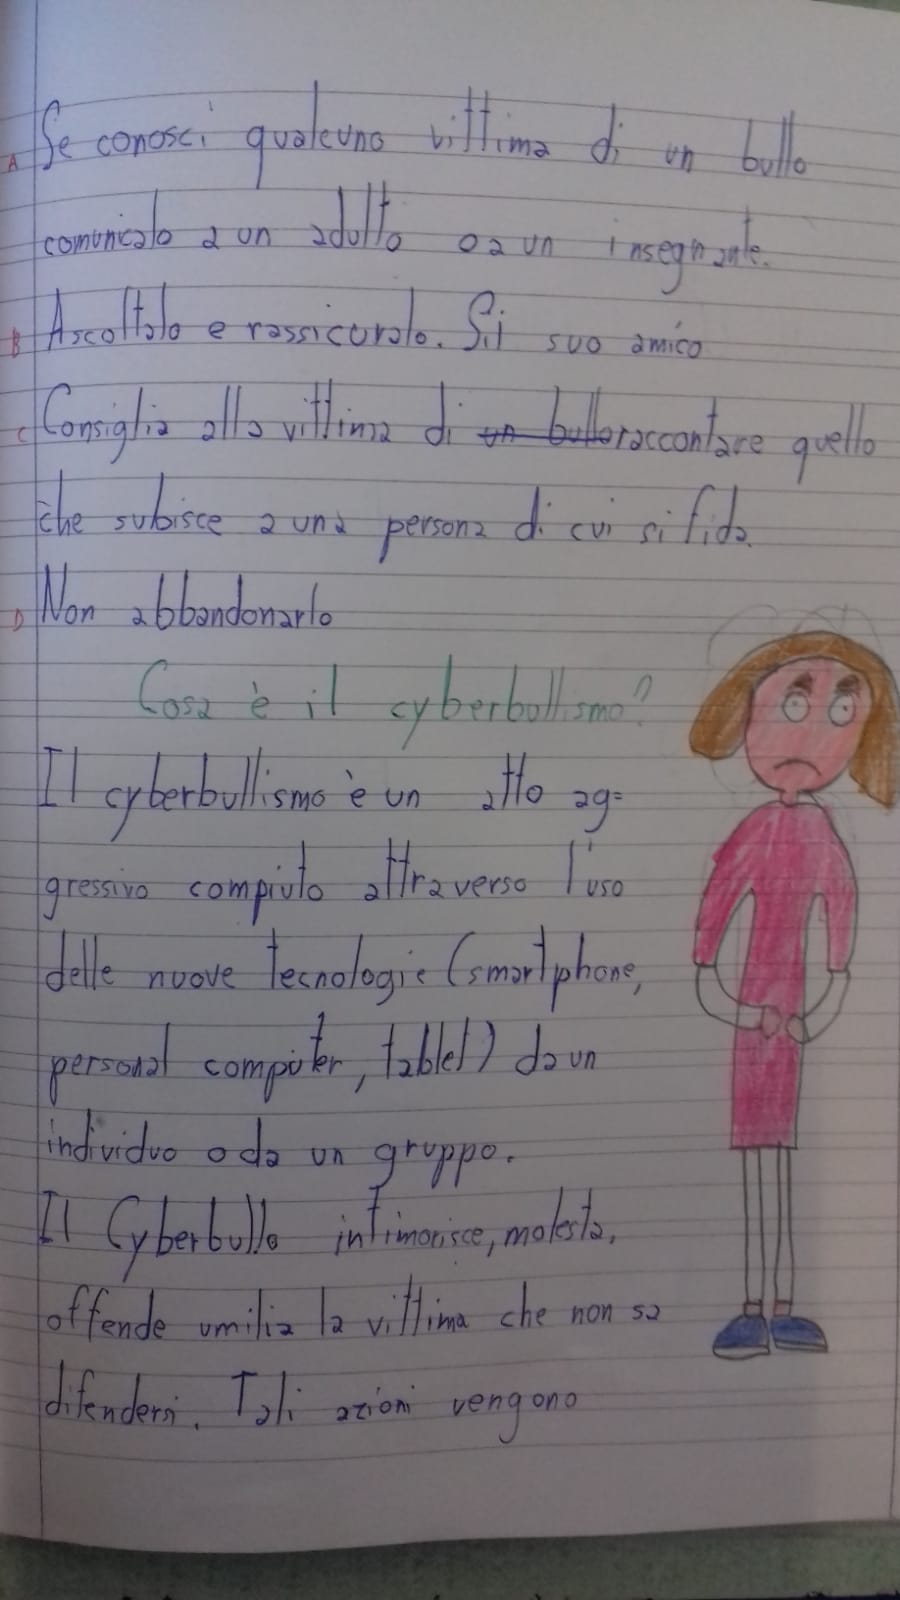 A Se conosci qualcuno vittima di un bullo
comunicalo a un adulto o a un insegnante.
B Ascoltalo e rassicuralo. Sii suo amico
C Consiglia alla vittima di un bullo raccontare quello
che subisce a una persona di cui si fida.
D Non abbandonarlo
Cosa è il cyberbullismo?
Il cyberbullismo è un atto ag=
gressivo compiuto attraverso l'uso
delle nuove tecnologie (smartphone,
personal computer, tablet) da un
individuo o da un gruppo.
Il Cyberbullo intimorisce, molesta,
offende umilia la vittima che non sa
difendersi. Tali azioni vengono